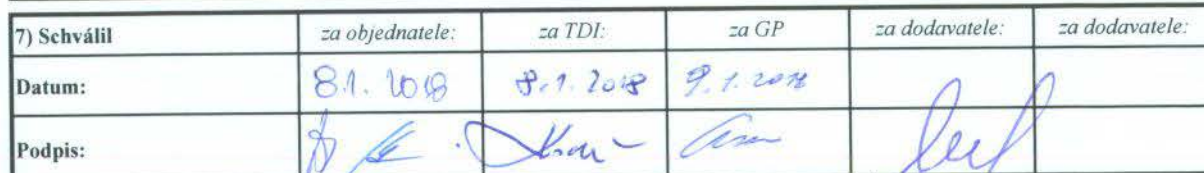 7) Schválil za objednatele: za TDI: za GP za dodavatele: za dodavatele:
Datum: 8.1. 2018 8.1. 2018 9.1. 2018
Podpis: